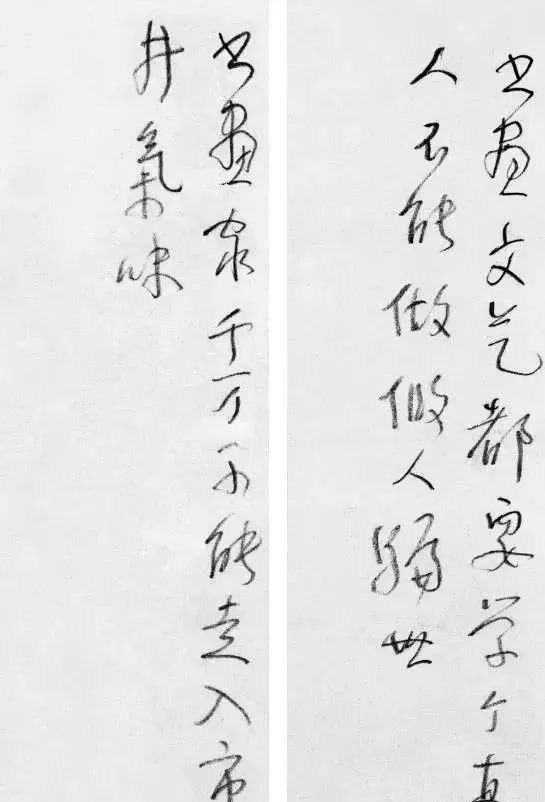 书画文艺都要学个真
人不能做假人骗世
书画家千万不能走入市
井氣味